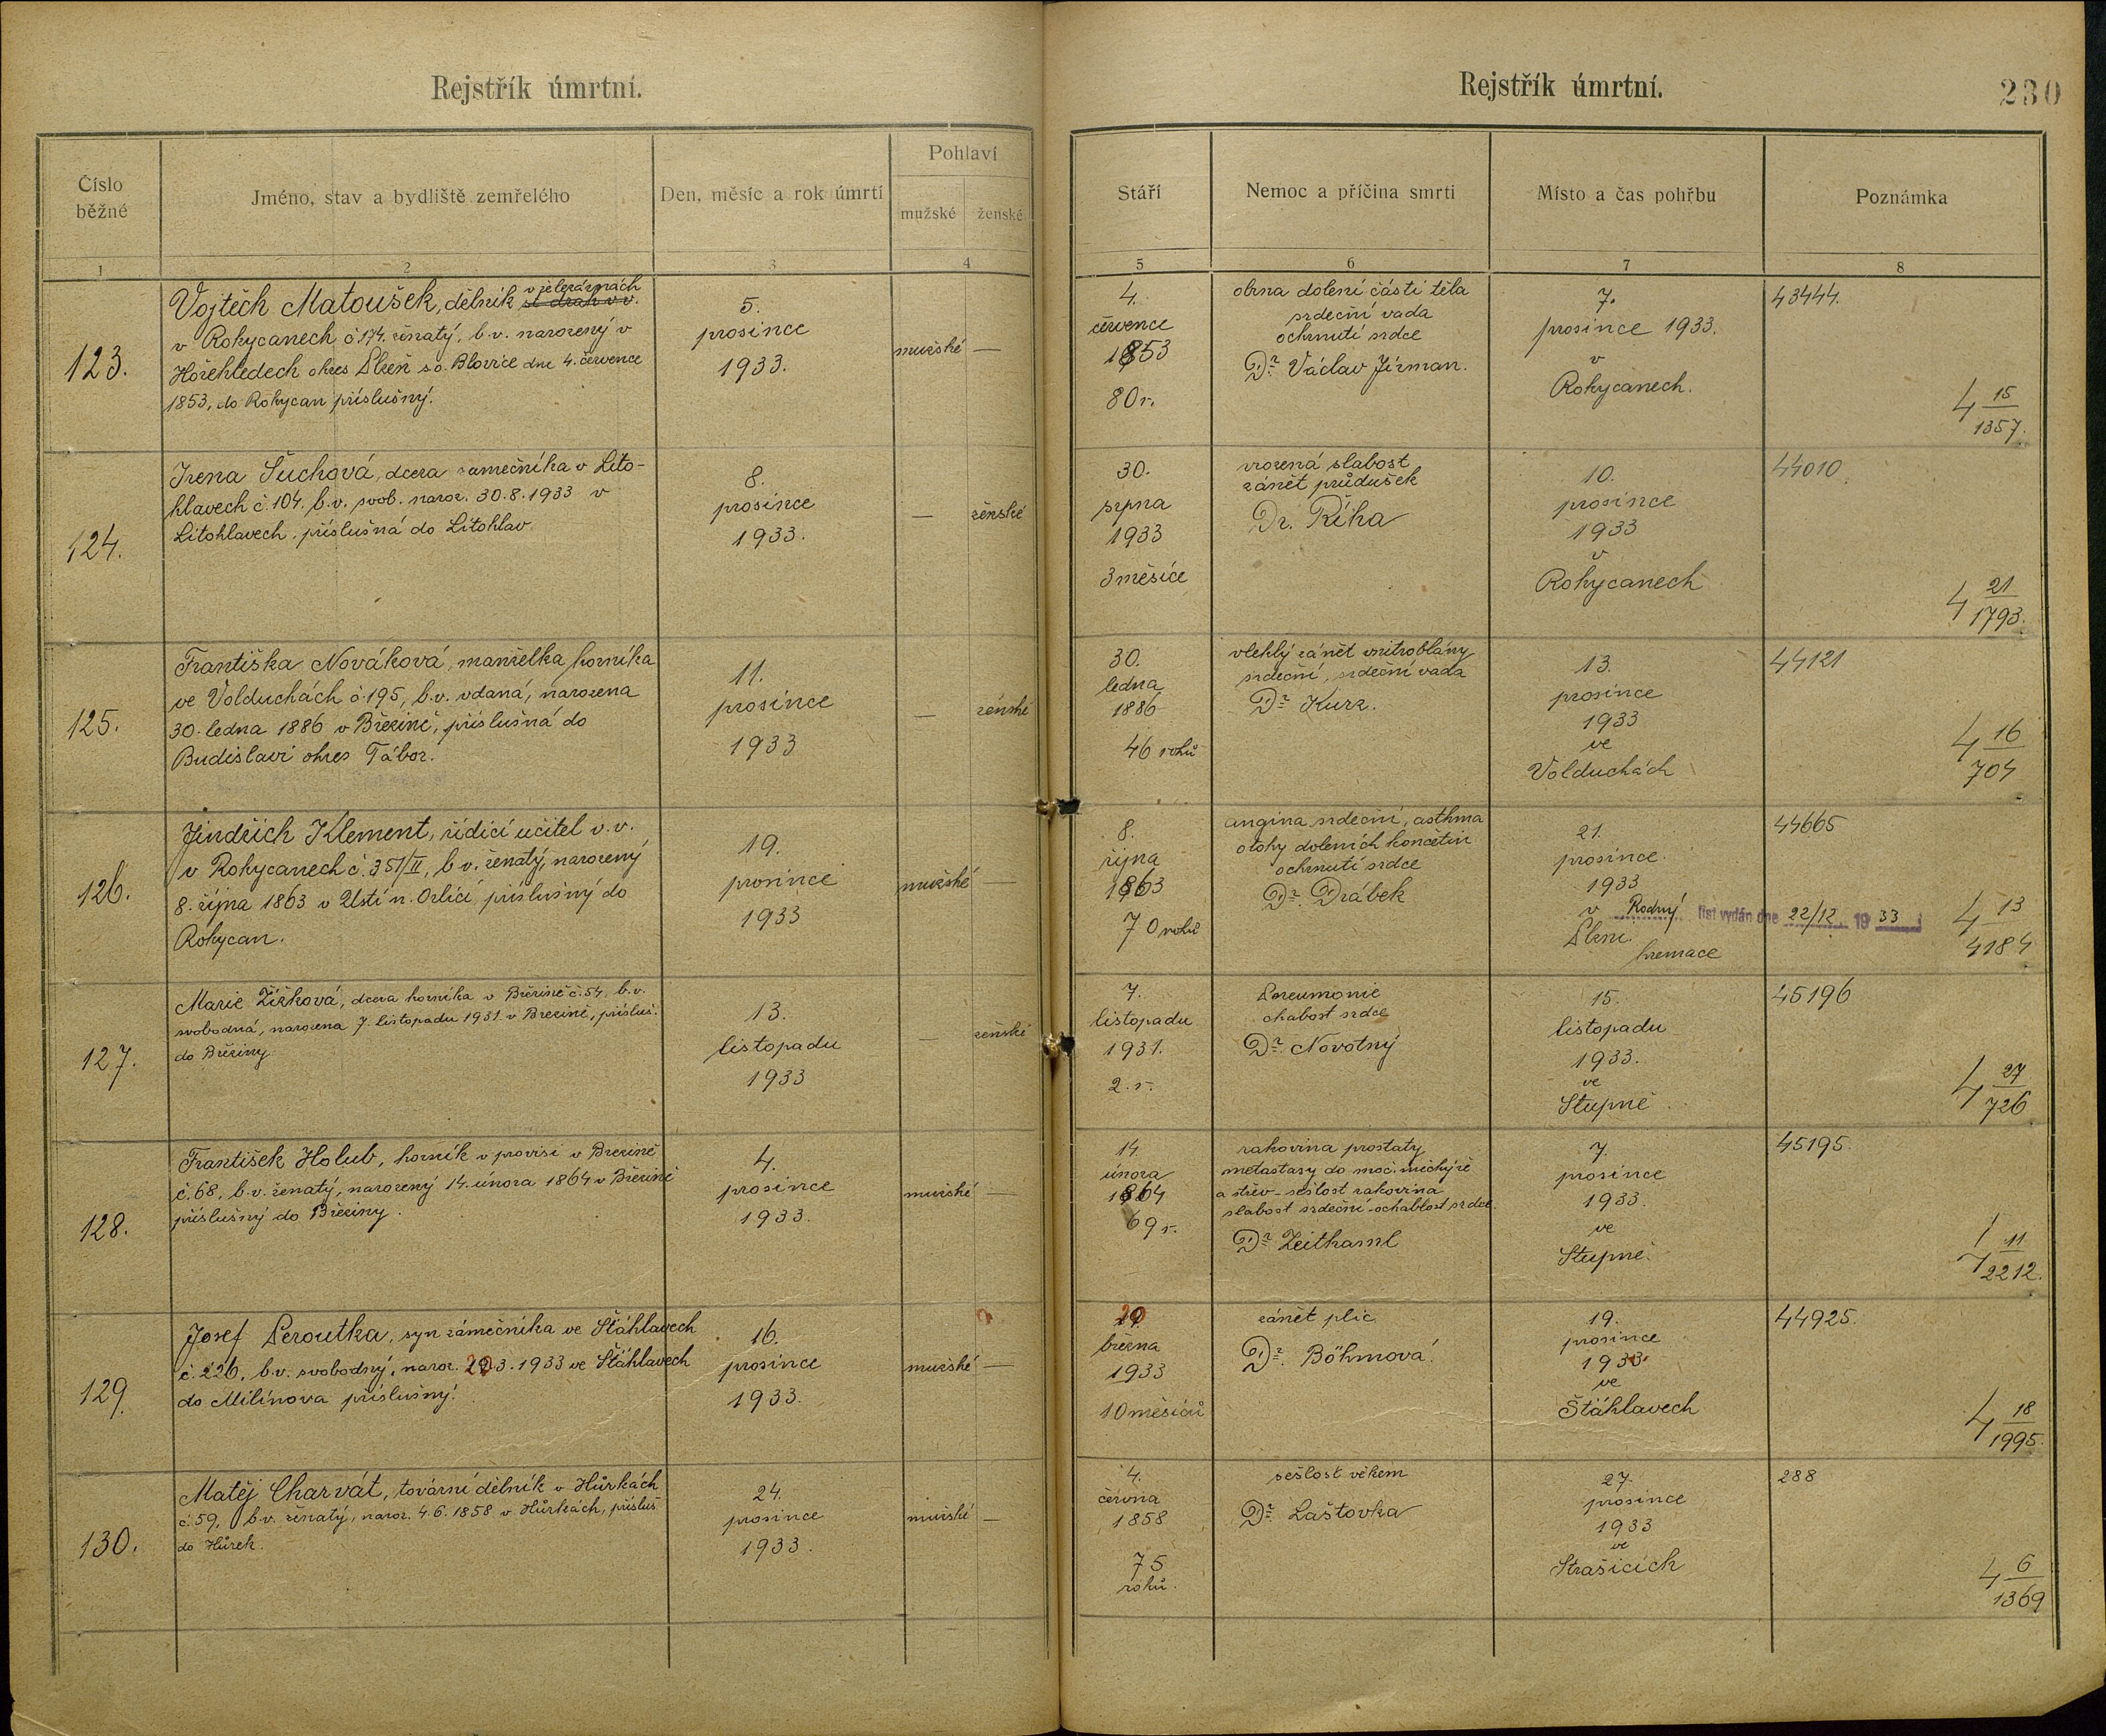 Rejstřík úmrtní.
Číslo běžné
Jméno, stav a bydliště zemřelého
Den, měsíc a rok úmrtí
Pohlaví
mužské
ženské
1
2
3
4
123.
Vojtěch Matoušek, dělník v železárnách
st. drah v.v.
v Rokycanech č 174. ženatý, b.v. narozený v
Hořehledech okres Plzeň s.o. Blovice dne 4. července
1853, do Rokycan příslušný.
5.
prosince
1933.
mužské —
124.
Irena Šuchová, dcera zámečníka v Lito-
hlavech č. 104. b.v. svob. naroz. 30.8.1933 v
Litohlavech, příslušná do Litohlav
8.
prosince
1933.
— ženské
125.
Františka Nováková, manželka horníka
ve Volduchách č.195, b.v. vdaná, narozena
30. ledna 1886 v Březině, příslušná do
Budislavi okres Tábor.
11.
prosince
1933
— ženské
126.
Jindřich Klement, řídící učitel v.v.
v Rokycanech č. 351/II, b.v. ženatý, narozený
8. října 1863 v Ústí n. Orlicí, příslušný do
Rokycan.
19.
prosince
1933
mužské —
127.
Marie Žížková, dcera horníka v Březině č.54, b.v.
svobodná, narozena 7. listopadu 1931 v Březině, přísluš.
do Březiny
13.
listopadu
1933
— ženské
128.
František Holub, horník v provisi v Březině
č.68, b.v. ženatý, narozený 14. února 1864 v Březině
příslušný do Březiny.
4.
prosince
1933.
mužské —
129.
Josef Peroutka, syn zámečníka ve Štáhlavech
č. 226, b.v. svobodný, naroz. 20.3.1933 ve Štáhlavech
do Milínova příslušný.
16.
prosince
1933.
mužské —
130.
Matěj Charvát, tovární dělník v Hůrkách
č.59, b.v. ženatý, naroz. 4.6.1858 v Hůrkách, přísluš
do Hůrek.
24.
prosince
1933.
mužské —
Rejstřík úmrtní.
230
Stáří
Nemoc a příčina smrti
Místo a čas pohřbu
Poznámka
5
6
7
8
4.
července
1853
80 r.
obrna dolení části těla
srdeční vada
ochrnutí srdce
Dr. Václav Jirman.
7.
prosince 1933.
v
Rokycanech.
43444.
4 15/1357.
30.
srpna
1933
3 měsíce
vrozená slabost
zánět průdušek
Dr. Říha
10.
prosince
1933
v
Rokycanech
44010
4 21/1793.
30.
ledna
1886
46 roků
vleklý zánět vnitroblány
srdeční, srdeční vada
Dr. Kurz.
13.
prosince
1933
ve
Volduchách
44121
4 16/704
8.
října
1863
70 roků
angina srdeční, asthma
otoky doleních končetin
ochrnutí srdce
Dr. Drábek
21.
prosince
1933
v
Plzni.
kremace
44665
Rodný list vydán dne 22/12 1933
4 13/4184
7.
listopadu
1931.
2. r.
Pneumonie
chabost srdce
Dr. Novotný
15.
listopadu
1933.
ve
Stupně
45196
4 27/726
14.
února
1864
69 r.
rakovina prostaty
metastasy do moč. míchýře
a střev - sešlost rakovina
slabost srdeční - ochablost srdce.
Dr. Zeithaml
7.
prosince
1933.
ve
Stupně.
45195.
11/2212.
20
března
1933
10 měsíců
zánět plic
Dr. Böhmová.
19.
prosince
1933.
ve
Štáhlavech
44925.
4 18/1995.
4.
června
1858
75
roků.
sešlost věkem
Dr. Laštovka
27.
prosince
1933
ve
Strašicích
288
4 6/1369